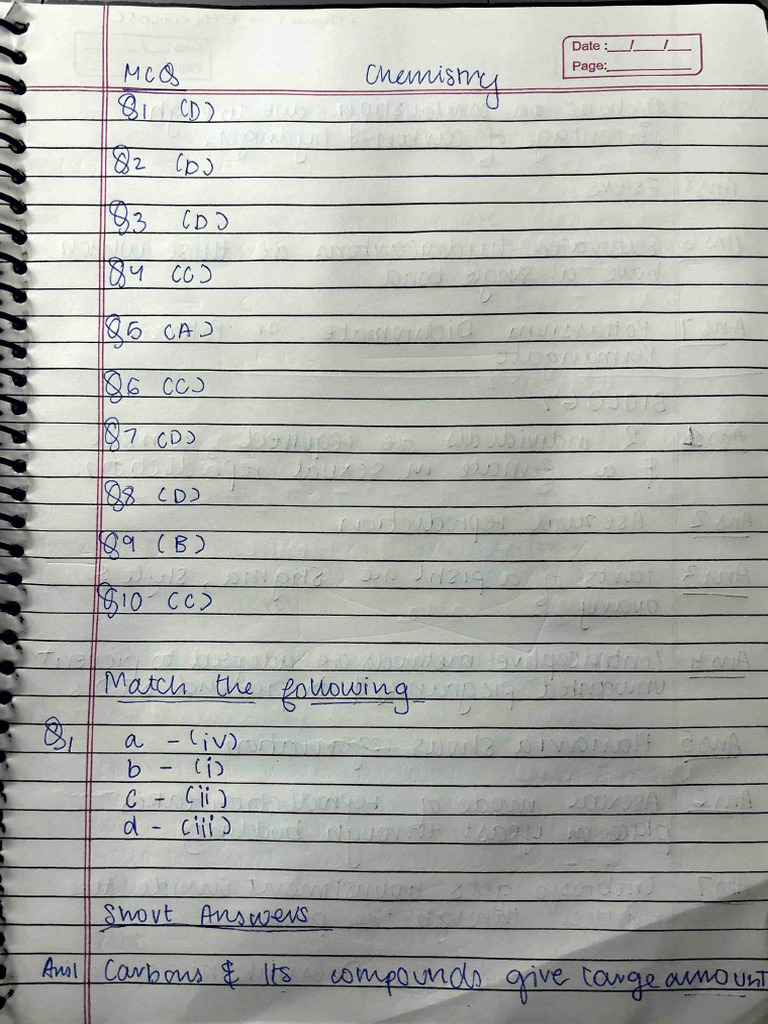 Date :__/__/__
Page:________
MCQs Chemistry
Q1 (D)
Q2 (D)
Q3 (D)
Q4 (C)
Q5 (A)
Q6 (C)
Q7 (D)
Q8 (D)
Q9 (B)
Q10 (C)
Match the following
Q1 a - (iv)
b - (i)
c - (ii)
d - (iii)
Short Answers
Ans1 Carbons & Its compounds give large amount